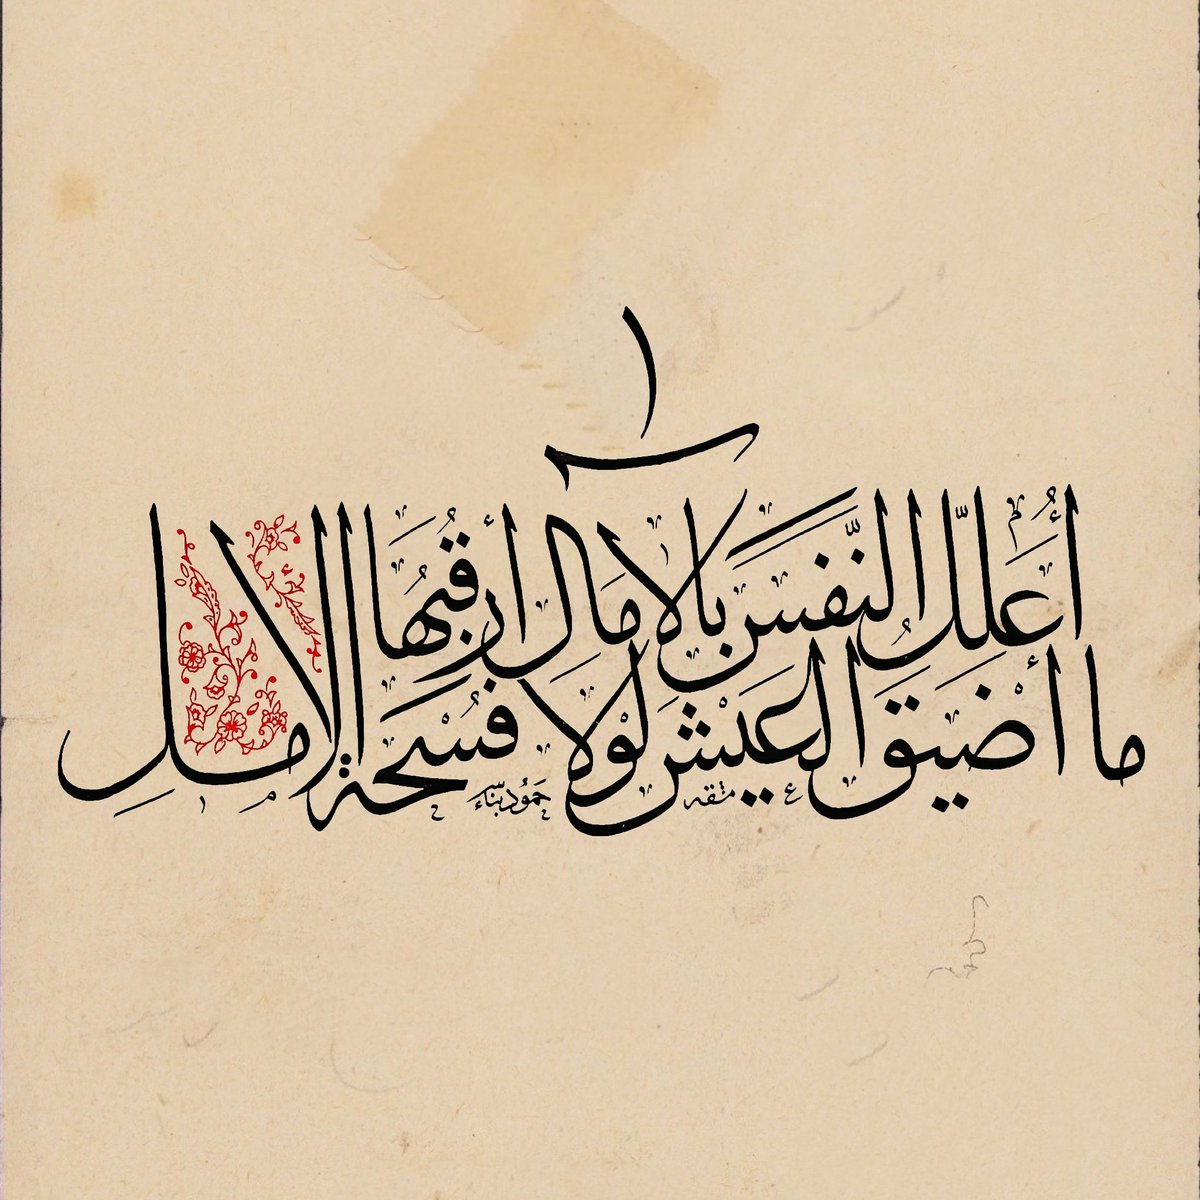 أُعَلِّلُ النَّفسَ بالآمَالِ أرقُبُهَا
ما أضْيَقَ العَيْشَ لَوْلا فُسْحَةُ الأملِ
مشقه حمود بنّاء